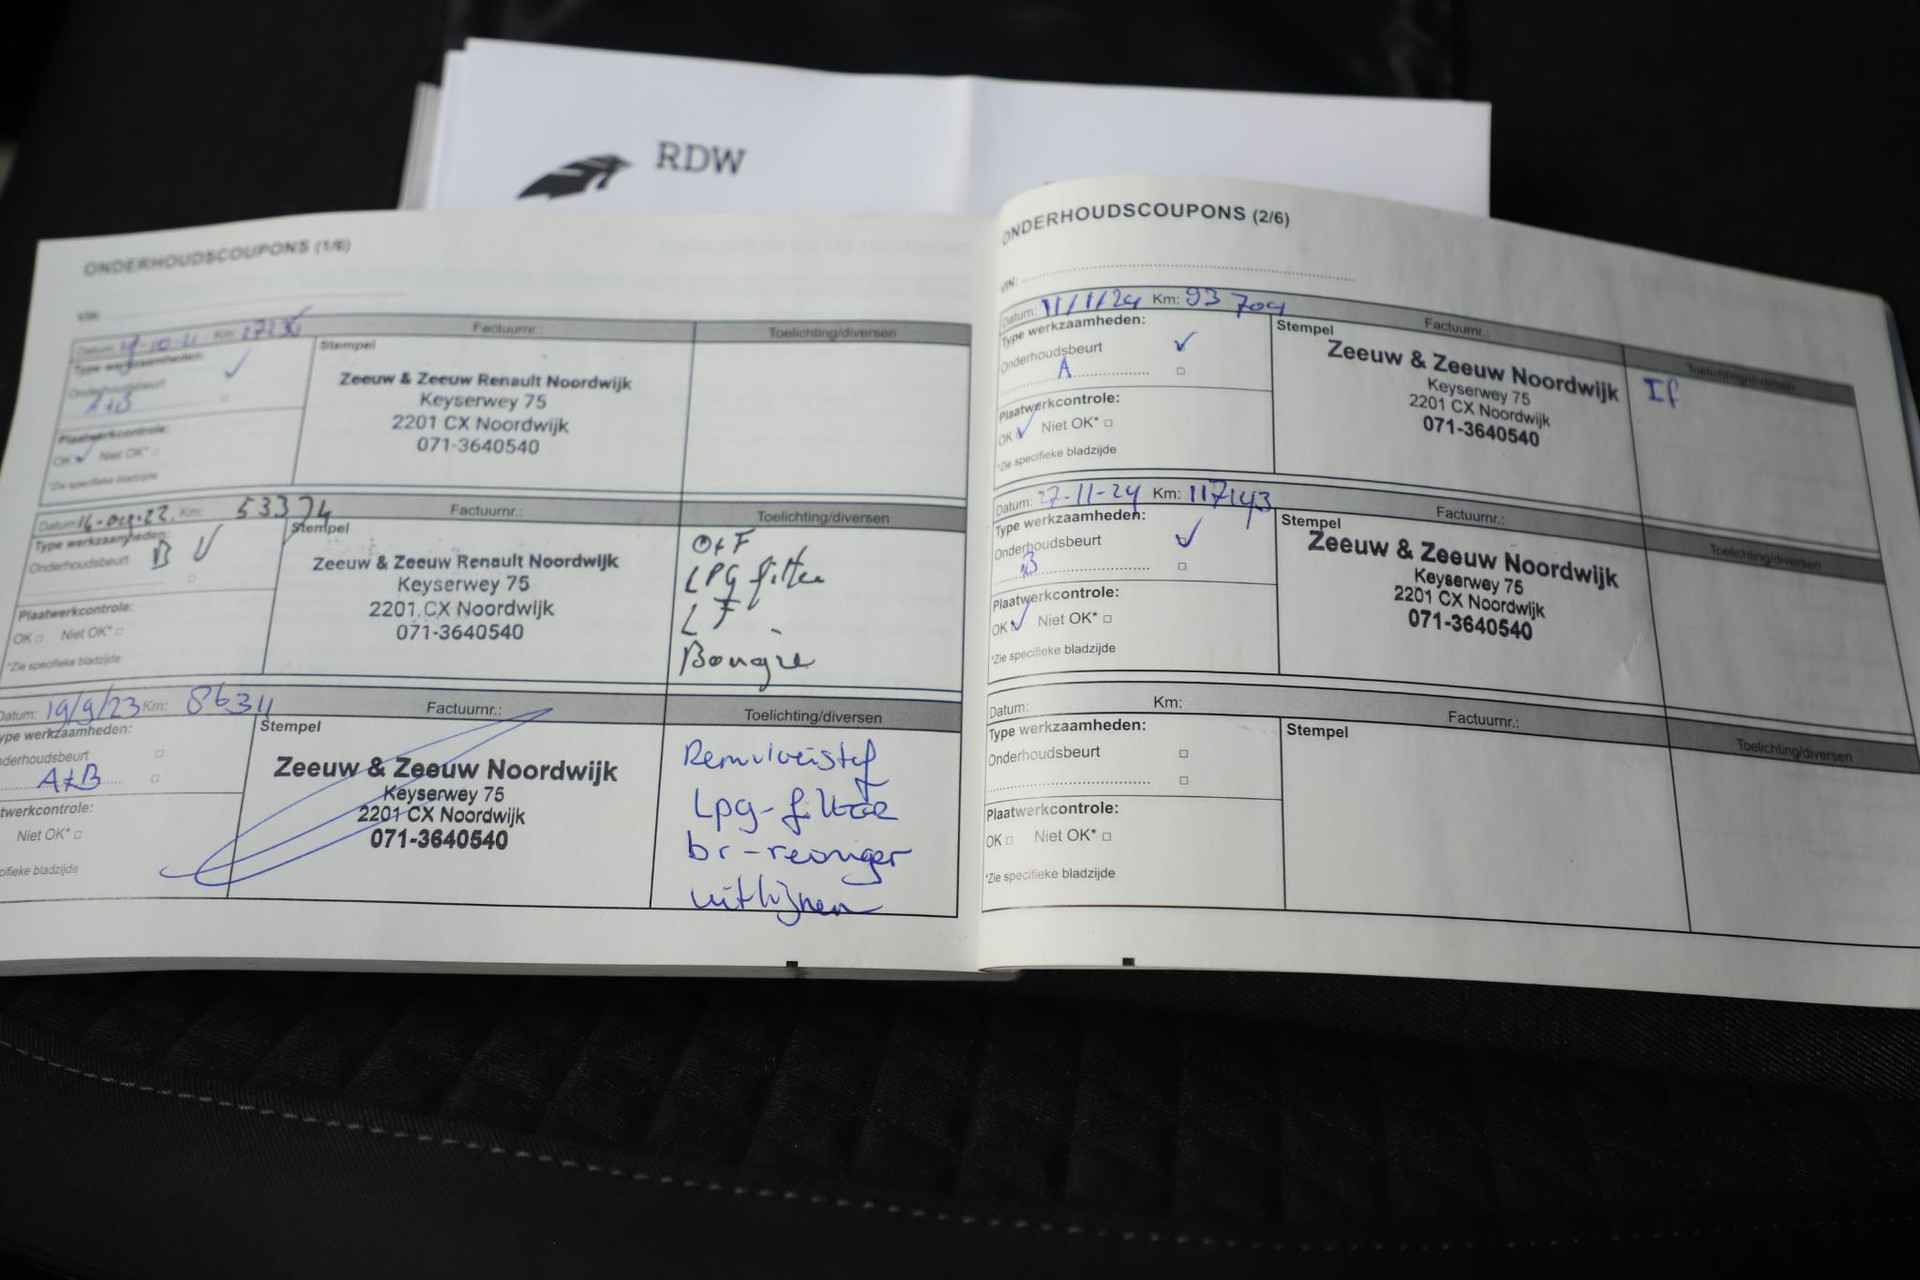 RDW
ONDERHOUDSCOUPONS (1/6)
VIN:
Datum: Km: Factuurnr.: Toelichting/diversen
Type werkzaamheden:
Stempel
Onderhoudsbeurt
A+B
Zeeuw & Zeeuw Renault Noordwijk
Keyserwey 75
2201 CX Noordwijk
071-3640540
Plaatwerkcontrole:
OK Niet OK*
*Zie specifieke bladzijde
Datum: Km: 53374 Factuurnr.: Toelichting/diversen
Type werkzaamheden:
Stempel
Onderhoudsbeurt B
Zeeuw & Zeeuw Renault Noordwijk
Keyserwey 75
2201 CX Noordwijk
071-3640540
O+F
LPG filter
LF
Bougie
Plaatwerkcontrole:
OK Niet OK*
*Zie specifieke bladzijde
Datum: 19/9/23 Km: Factuurnr.: Toelichting/diversen
ype werkzaamheden:
Stempel
nderhoudsbeurt
A+B
Zeeuw & Zeeuw Noordwijk
Keyserwey 75
2201 CX Noordwijk
071-3640540
Remvloeistof
Lpg-filter
br-reiniger
uitlijnen
twerkcontrole:
Niet OK*
cifieke bladzijde
ONDERHOUDSCOUPONS (2/6)
VIN:
Datum: 11/1/24 Km: 93704 Factuurnr.:
Type werkzaamheden:
Stempel
Onderhoudsbeurt
A
Zeeuw & Zeeuw Noordwijk
Keyserwey 75
2201 CX Noordwijk
071-3640540
Plaatwerkcontrole:
OK Niet OK*
*Zie specifieke bladzijde
Datum: 27-11-24 Km: 117143 Factuurnr.: Toelichting/diversen
Type werkzaamheden:
Stempel
Onderhoudsbeurt
B
Zeeuw & Zeeuw Noordwijk
Keyserwey 75
2201 CX Noordwijk
071-3640540
Plaatwerkcontrole:
OK Niet OK*
*Zie specifieke bladzijde
Datum: Km: Factuurnr.: Toelichting/diversen
Type werkzaamheden:
Stempel
Onderhoudsbeurt
Plaatwerkcontrole:
OK Niet OK*
*Zie specifieke bladzijde